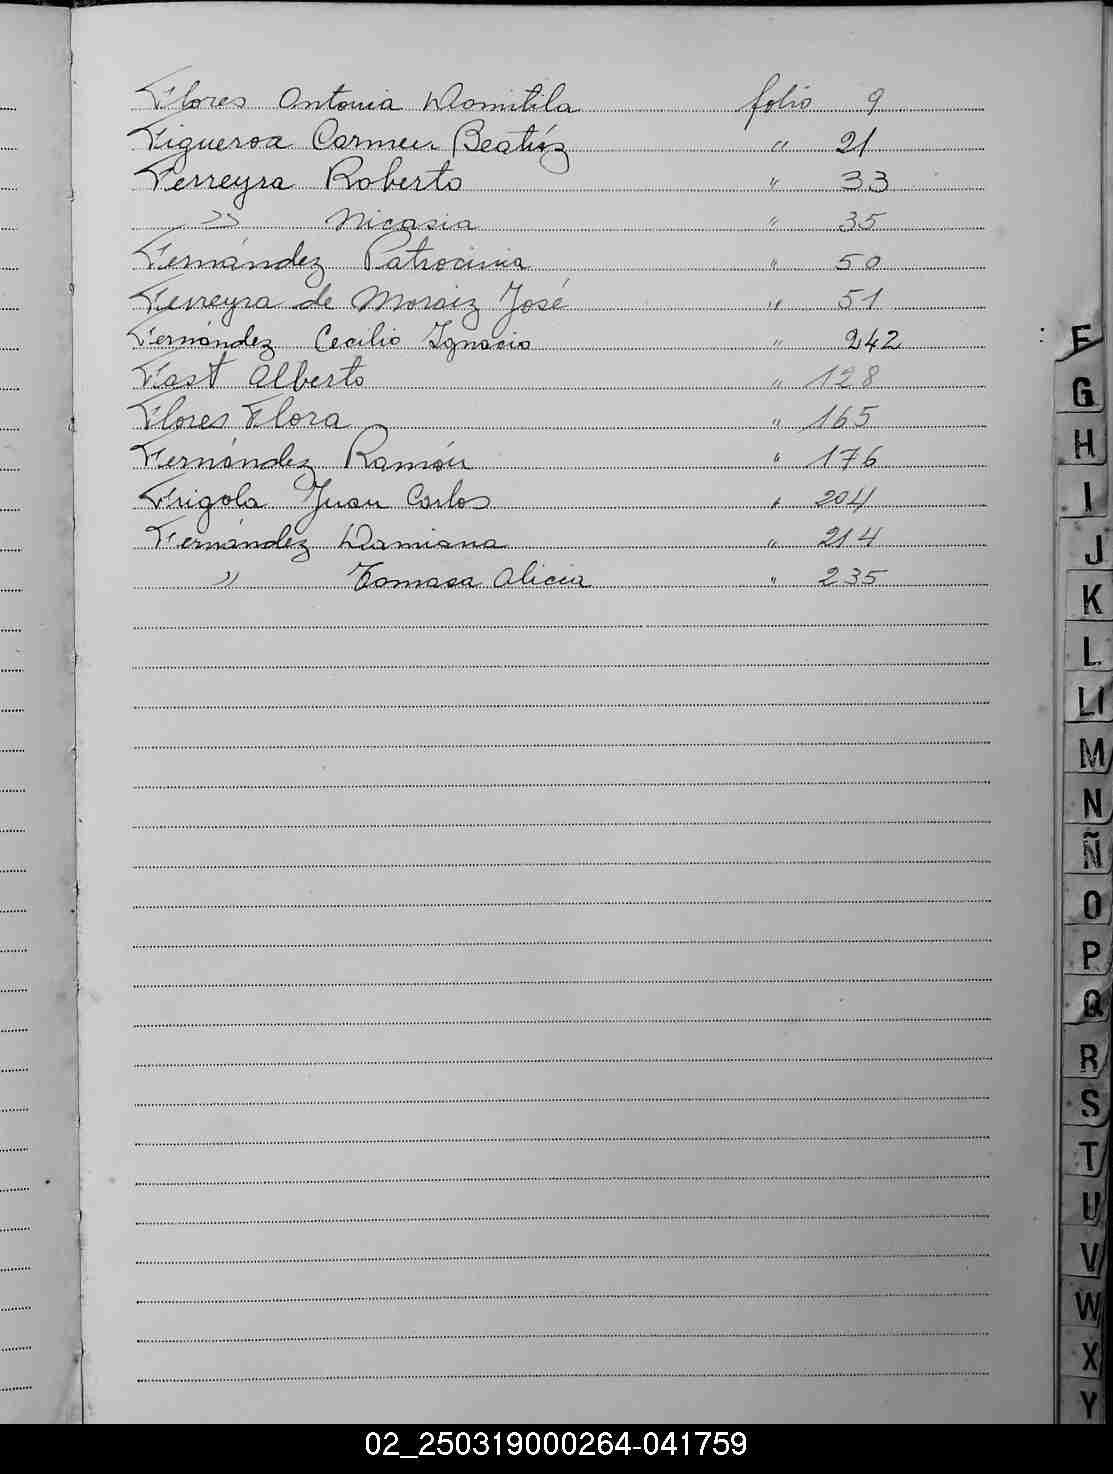 Flores Antonia Domitila folio 9
Figueroa Carmen Beatríz " 21
Ferreyra Roberto " 33
" Nicasia " 35
Fernández Patrocinia " 50
Ferreyra de Moraiz José " 51
Fernández Cecilio Ignacio " 242
Fast Alberto " 128
Flores Flora " 165
Fernández Ramón " 176
Frigola Juan Carlos " 204
Fernández Damiana " 214
" Tomasa Alicia " 235
F
G
H
I
J
K
L
Ll
M
N
Ñ
O
P
Q
R
S
T
U
V
W
X
Y
02_250319000264-041759